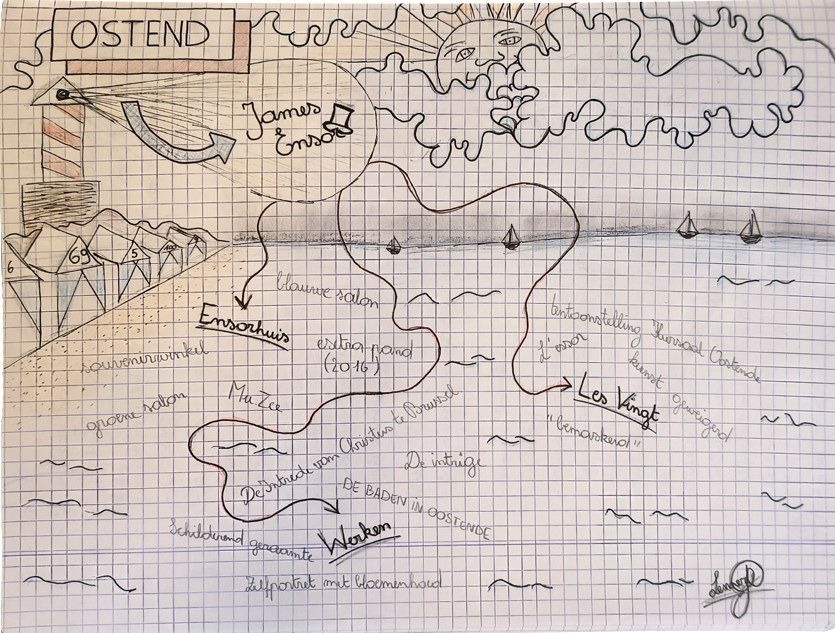 OSTEND
James
Ensor
6
69
5
blauwe salon
Ensorhuis
extra pand
(2016)
souvenirwinkel
groene salon
MuZee
tentoonstelling Kursaal Oostende
L'essor
kunst geweigerd
Les Vingt
"bemaskerd"
De Intrede van Christus te Brussel
De intrige
DE BADEN IN OOSTENDE
Schilderend geraamte
Werken
Zelfportret met bloemenhoed